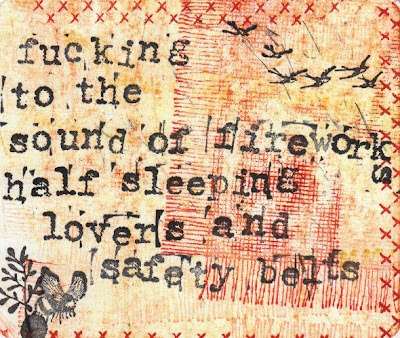 fucking
to the
sound of fireworks
half sleeping
lovers and
safety belts